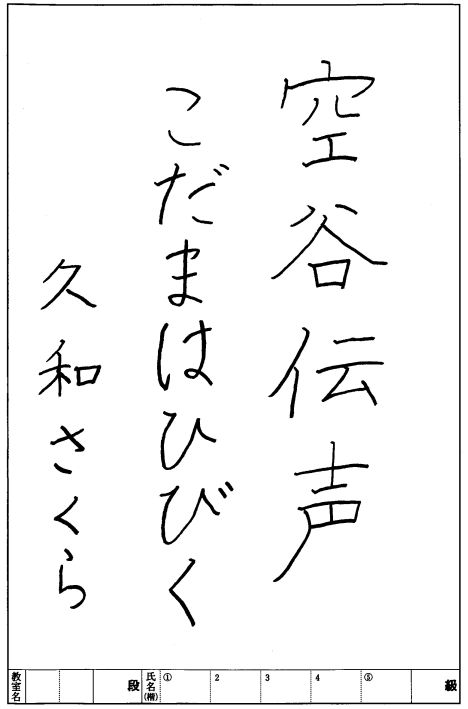 空谷伝声
こだまはひびく
久和さくら
教室名 段 氏名(楷) ① 2 3 4 ⑤ 級